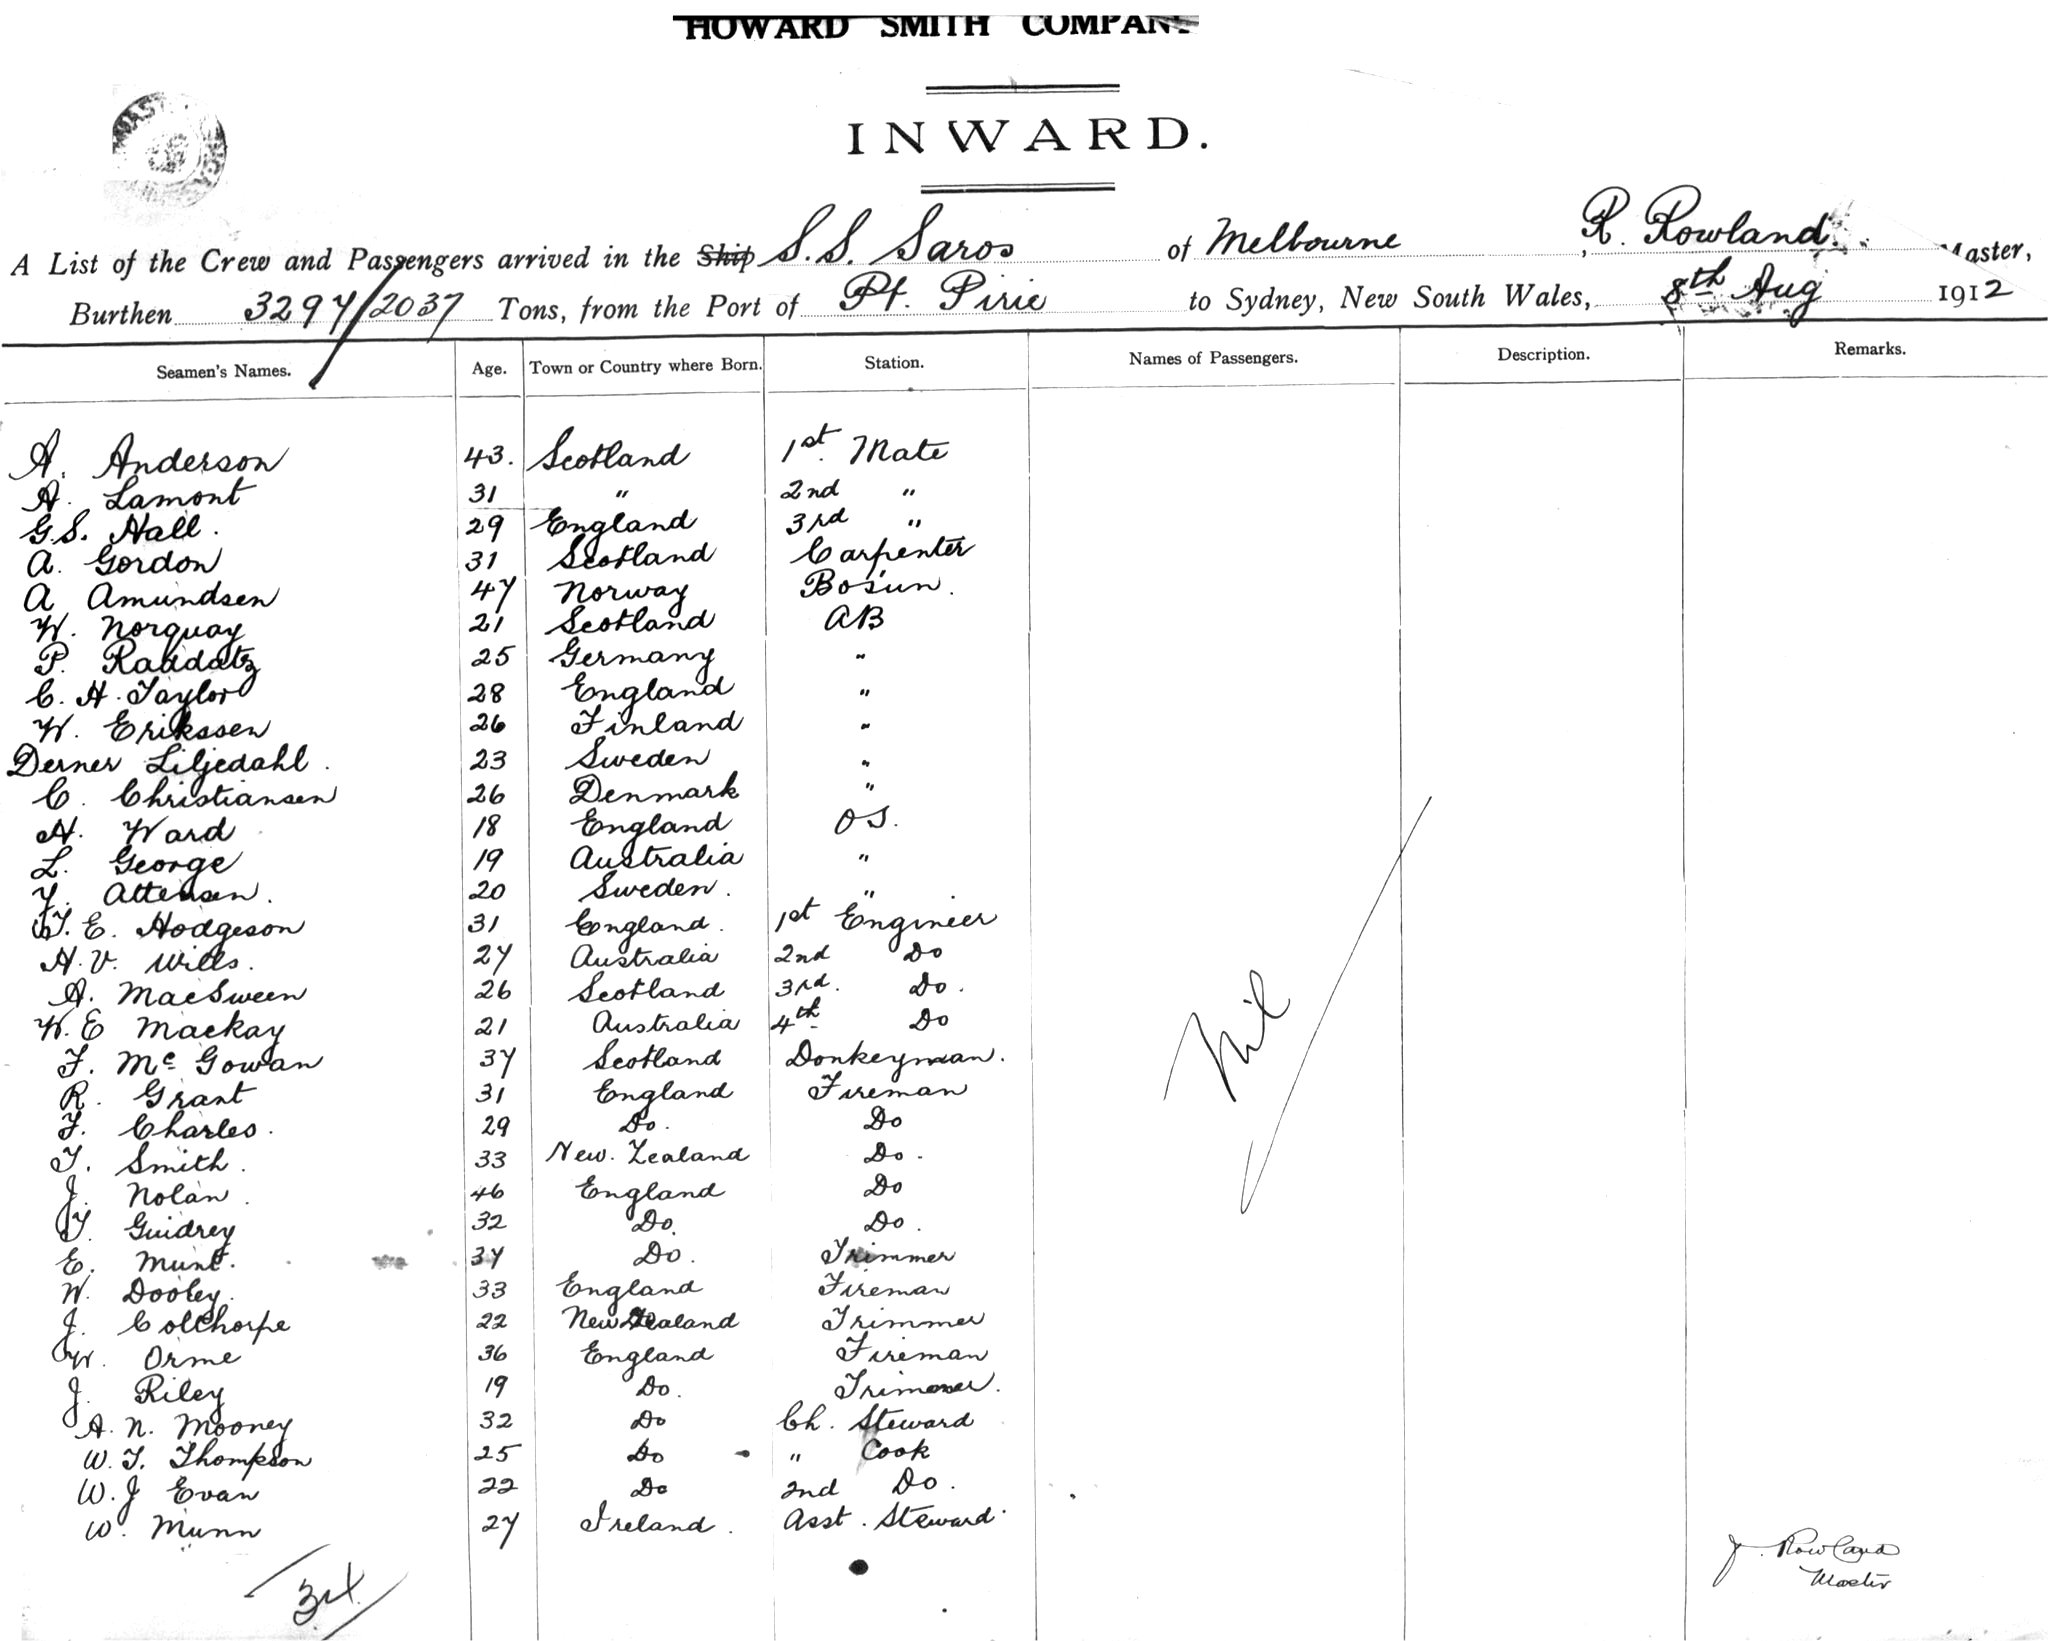 HOWARD SMITH COMPANY
INWARD.
A List of the Crew and Passengers arrived in the Ship S.S. Saros of Melbourne, R. Rowland. Master,
Burthen 3297/2037 Tons, from the Port of Pt. Pirie to Sydney, New South Wales, 8th Aug 1912
Seamen's Names. Age. Town or Country where Born. Station. Names of Passengers. Description. Remarks.
A. Anderson 43. Scotland 1st. Mate
A. Lamont 31 " 2nd "
G.S. Hall. 29 England 3rd "
A. Gordon 31 Scotland Carpenter
A Amundsen 47 Norway Bos'un.
W. Norquay 21 Scotland AB
P. Raddatz 25 Germany "
C. H. Taylor 28 England "
W. Erikssen 26 Finland "
Derner Liljedahl. 23 Sweden "
C. Christiansen 26 Denmark "
H. Ward 18 England OS.
L. George 19 Australia "
Y. Attensen. 20 Sweden. "
T. E. Hodgeson 31 England. 1st Engineer
H. V. Wills. 27 Australia 2nd Do
A. MacSween 26 Scotland 3rd. Do.
W. E Mackay 21 Australia 4th Do
F. Mc Gowan 37 Scotland Donkeyman.
R. Grant 31 England Fireman
F. Charles. 29 Do. Do
T. Smith. 33 New. Zealand Do.
J. Nolan. 46 England Do
T. Guidrey 32 Do. Do.
E. Munt. 37 Do. Trimmer
W. Dooley. 33 England Fireman
J. Colthorpe 22 New Zealand Trimmer
W. Orme 36 England Fireman
J. Riley 19 Do. Trimmer.
A. N. Mooney 32 Do Ch. Steward
W. T. Thompson 25 Do " Cook
W. J Evan 22 Do 2nd Do.
W. Munn 27 Ireland. Asst. Steward.
Nil
34
J. Rowland
Master